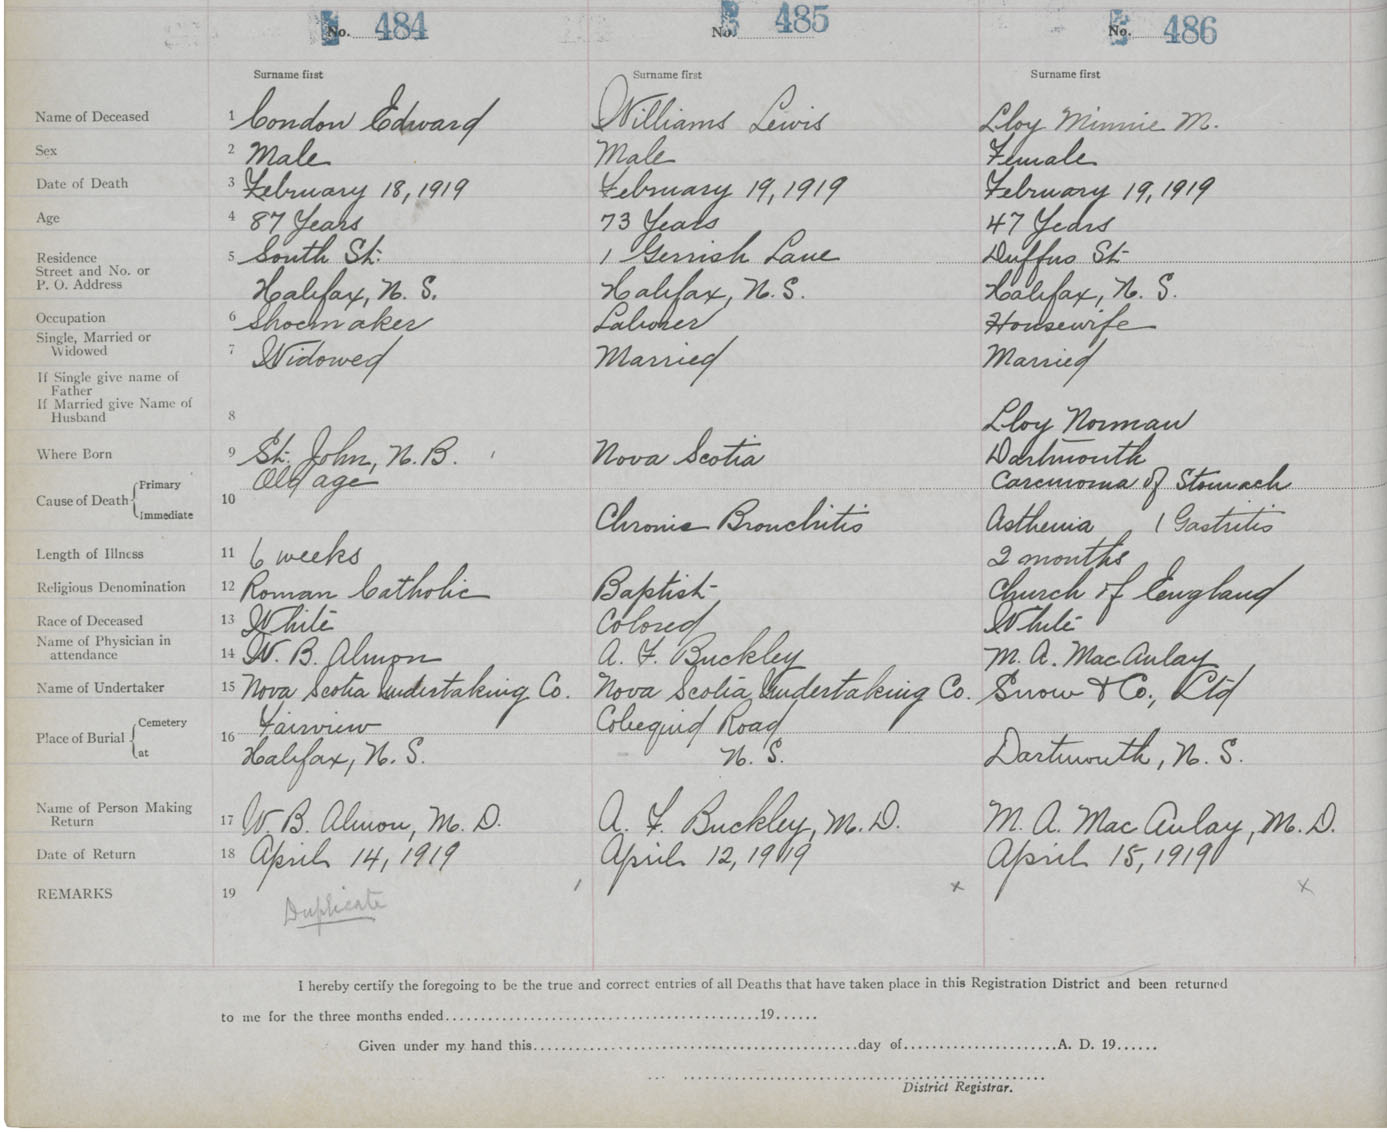 No. 484 No. 485 No. 486
Surname first Surname first Surname first
Name of Deceased 1 Condon Edward Williams Lewis Lloy Minnie M.
Sex 2 Male Male Female
Date of Death 3 February 18, 1919 February 19, 1919 February 19, 1919
Age 4 87 Years 73 Years 47 Years
Residence 5 South St. 1 Gerrish Lane Duffus St.
Street and No. or
P. O. Address Halifax, N. S. Halifax, N. S. Halifax, N. S.
Occupation 6 Shoemaker Laborer Housewife
Single, Married or
Widowed 7 Widowed Married Married
If Single give name of
Father
If Married give Name of
Husband 8 Lloy Norman
Where Born 9 St. John, N. B. Nova Scotia Dartmouth
Cause of Death Primary 10 Old age Carcinoma of Stomach
Immediate Chronic Bronchitis Asthenia / Gastritis
Length of Illness 11 6 weeks 2 months
Religious Denomination 12 Roman Catholic Baptist Church of England
Race of Deceased 13 White Colored White
Name of Physician in
attendance 14 W. B. Almon A. F. Buckley M. A. MacAulay
Name of Undertaker 15 Nova Scotia Undertaking Co. Nova Scotia Undertaking Co. Snow & Co., Ltd
Place of Burial Cemetery 16 Fairview Cobequid Road
at Halifax, N. S. N. S. Dartmouth, N. S.
Name of Person Making
Return 17 W. B. Almon, M. D. A. F. Buckley, M. D. M. A. MacAulay, M. D.
Date of Return 18 April 14, 1919 April 12, 1919 April 15, 1919
REMARKS 19 x x
Duplicate
I hereby certify the foregoing to be the true and correct entries of all Deaths that have taken place in this Registration District and been returned
to me for the three months ended..........19......
Given under my hand this..........day of..........A. D. 19......
District Registrar.